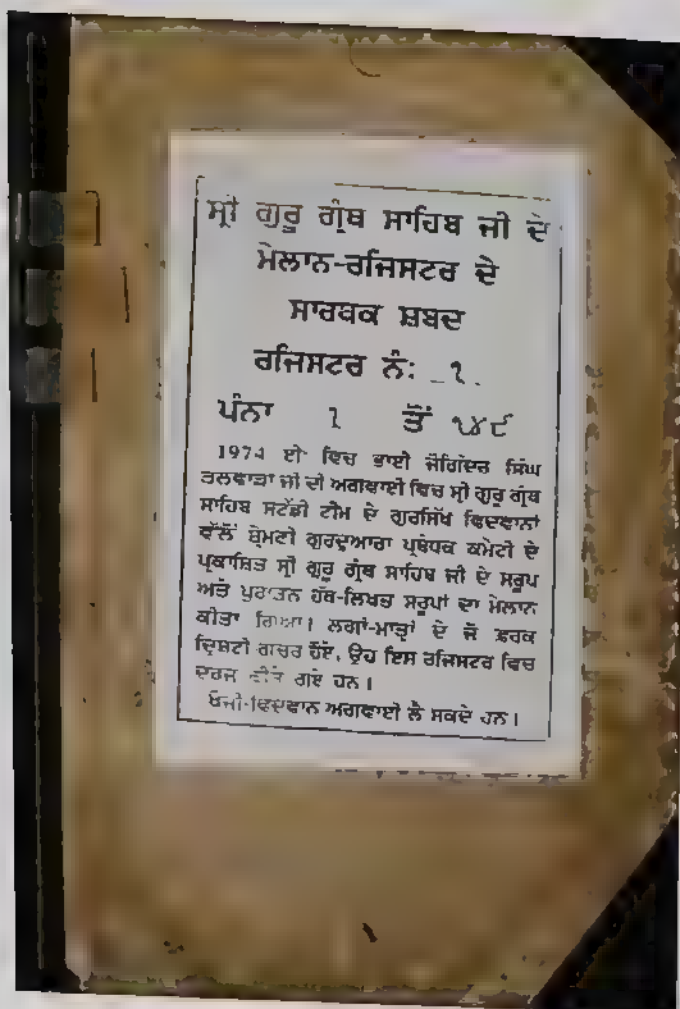 ਸ੍ਰੀ ਗੁਰੂ ਗ੍ਰੰਥ ਸਾਹਿਬ ਜੀ ਦੇ
ਮੇਲਾਨ-ਰਜਿਸਟਰ ਦੇ
ਸਾਰਥਕ ਸ਼ਬਦ
ਰਜਿਸਟਰ ਨੰ: 1.
ਪੰਨਾ 1 ਤੋਂ ੧੪੯
1974 ਈ: ਵਿਚ ਭਾਈ ਜੋਗਿੰਦਰ ਸਿੰਘ
ਤਲਵਾੜਾ ਜੀ ਦੀ ਅਗਵਾਈ ਵਿਚ ਸ੍ਰੀ ਗੁਰੂ ਗ੍ਰੰਥ
ਸਾਹਿਬ ਸਟੱਡੀ ਟੀਮ ਦੇ ਗੁਰਸਿੱਖ ਵਿਦਵਾਨਾਂ
ਵੱਲੋਂ ਸ਼੍ਰੋਮਣੀ ਗੁਰਦੁਆਰਾ ਪ੍ਰਬੰਧਕ ਕਮੇਟੀ ਦੇ
ਪ੍ਰਕਾਸ਼ਿਤ ਸ੍ਰੀ ਗੁਰੂ ਗ੍ਰੰਥ ਸਾਹਿਬ ਜੀ ਦੇ ਸਰੂਪ
ਅਤੇ ਪੁਰਾਤਨ ਹੱਥ-ਲਿਖਤ ਸਰੂਪਾਂ ਦਾ ਮੇਲਾਨ
ਕੀਤਾ ਗਿਆ। ਲਗਾਂ-ਮਾਤ੍ਰਾਂ ਦੇ ਜੋ ਫ਼ਰਕ
ਦ੍ਰਿਸ਼ਟੀ ਗੋਚਰ ਹੋਏ, ਉਹ ਇਸ ਰਜਿਸਟਰ ਵਿਚ
ਦਰਜ ਕੀਤੇ ਗਏ ਹਨ।
ਖੋਜੀ-ਵਿਦਵਾਨ ਅਗਵਾਈ ਲੈ ਸਕਦੇ ਹਨ।